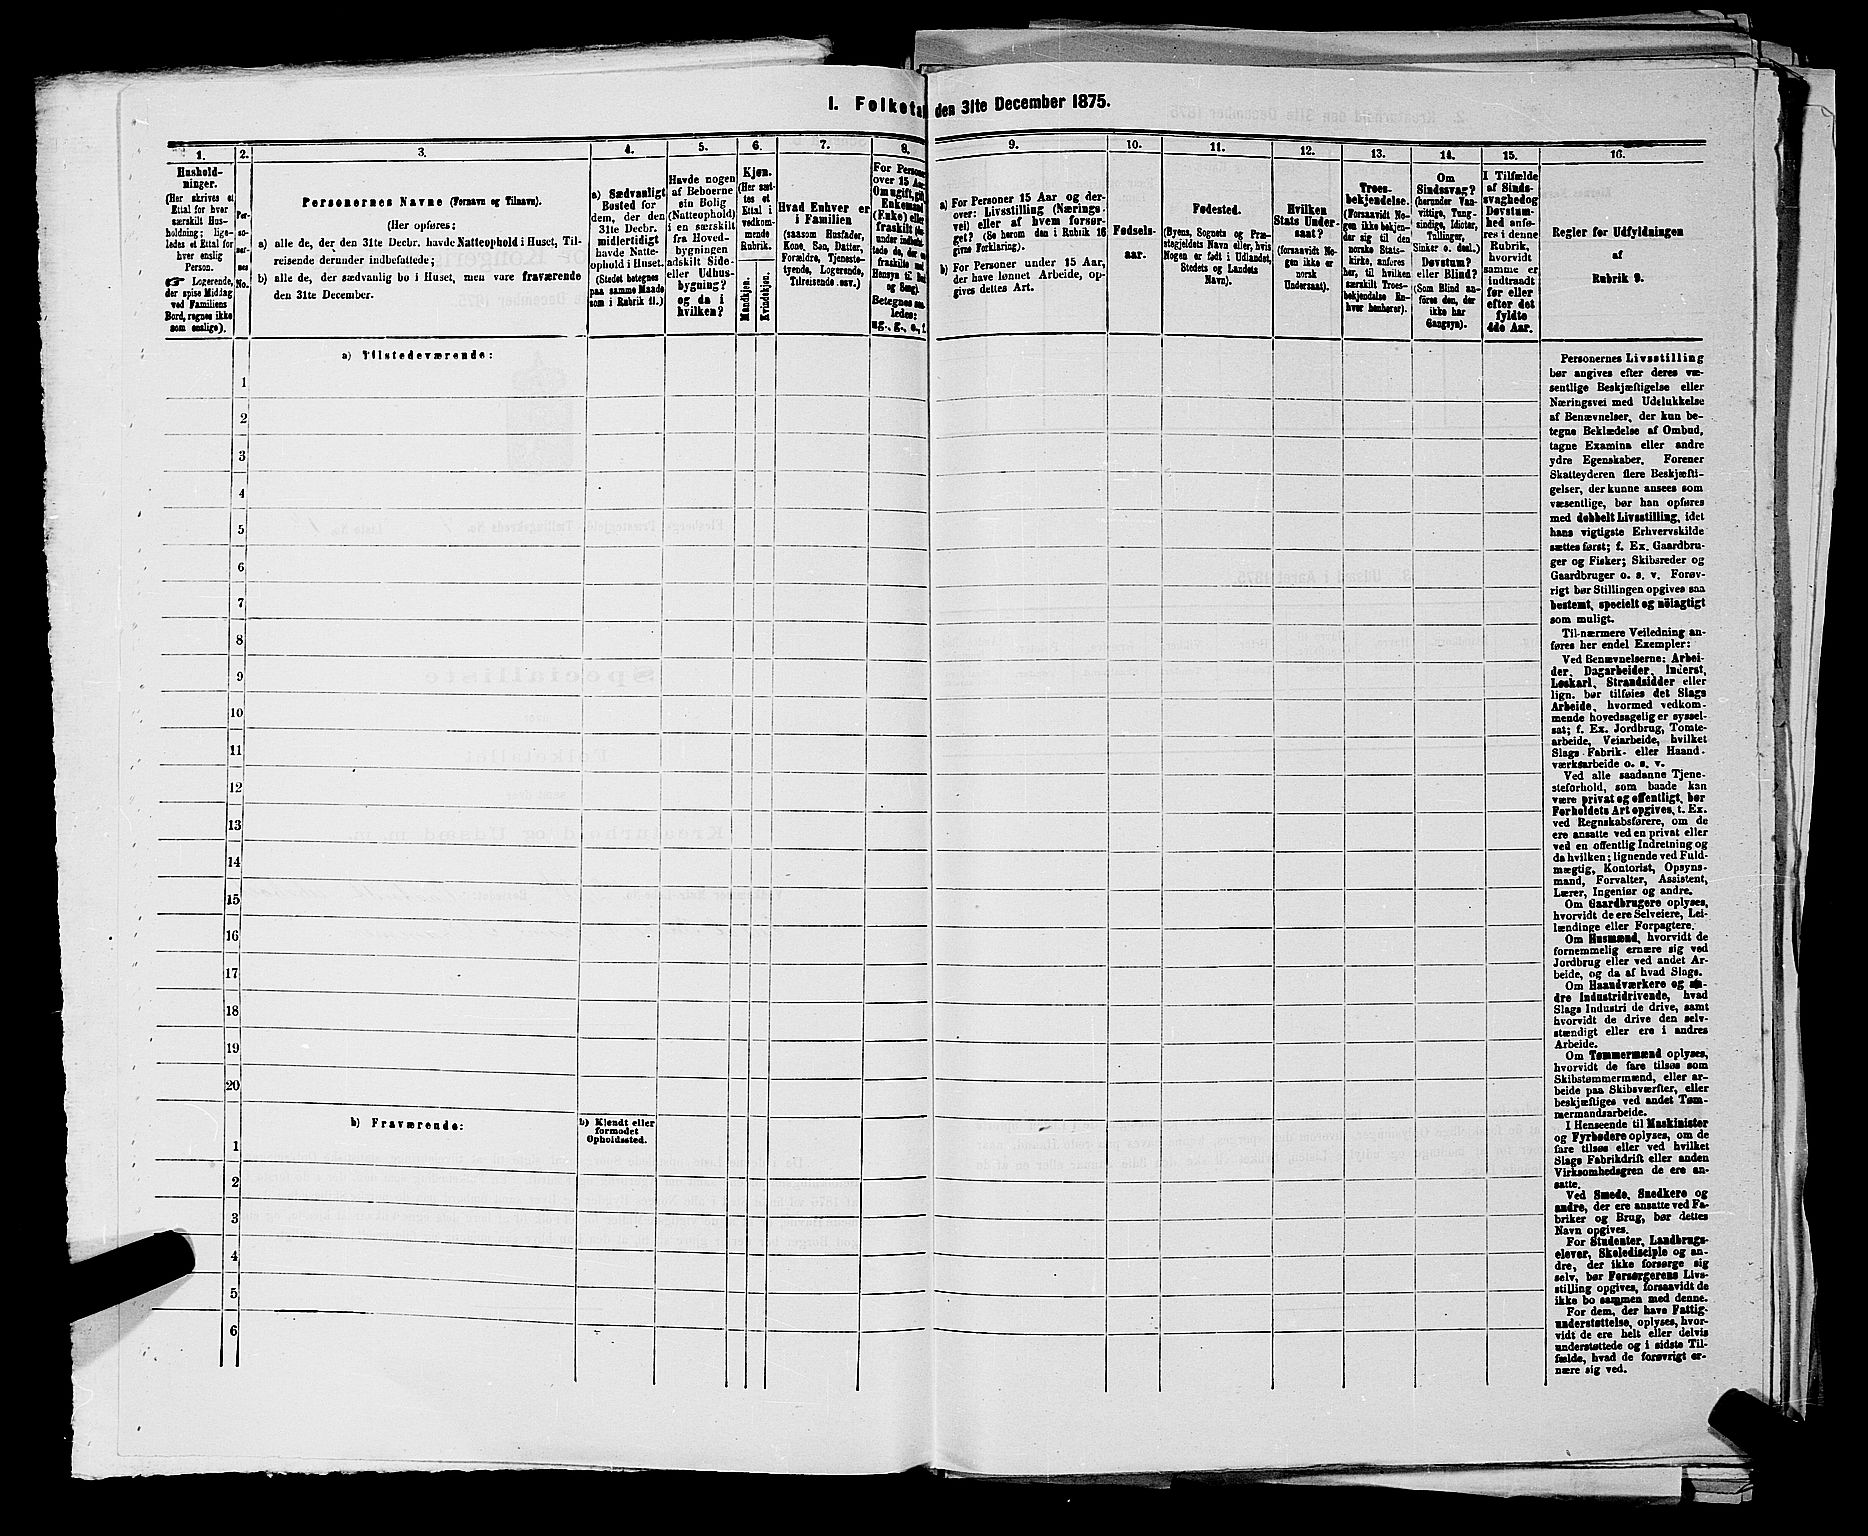 1. Folketal den 31te December 1875.
1.
Hushold-
ninger.
(Her skrives et
Ettal for hver
særskilt Hus-
holdning; lige-
ledes et Ettal for
hver enslig
Person.
Logerende,
der spise Middag
ved Familiens
Bord, regnes ikke
som enslige).
2.
Per-
so-
ner-
nes
No.
3.
Personernes Navne (Fornavn og Tilnavn).
(Her opføres:
a) alle de, der den 31te Decbr. havde Natteophold i Huset, Til-
reisende derunder indbefattede;
b) alle de, der sædvanlig bo i Huset, men vare fraværende
den 31te December.
4.
a) Sædvanligt
Bosted for
dem, der den
31te Decbr.
midlertidigt
havde Natte-
ophold i Huset.
(Stedet betegnes
paa samme Maade
som i Rubrik 11.)
5.
Havde nogen
af Beboerne
sin Bolig
(Natteophold)
i en særskilt
fra Hoved-
bygningen
adskilt Side-
eller Udhus-
bygning?
og da i
hvilken?
6.
Kjøn.
(Her sæt-
tes et
Ettal i
vedkom-
mende
Rubrik.
Mandkjøn.
Kvindekjøn.
7.
Hvad Enhver er
i Familien
(saasom Husfader,
Kone, Søn, Datter,
Forældre, Tjeneste-
tyende, Logerende,
Tilreisende osv.)
8.
For Personer
over 15 Aar,
Om ugift, gift,
Enkemand
(Enke) eller
fraskilt
Betegnes saa-
ledes:
ug., g., e., f.
9.
a) For Personer 15 Aar og der-
over: Livsstilling (Nærings-
vei) eller af hvem forsør-
get? (Se herom den i Rubrik 16
givne Forklaring).
b) For Personer under 15 Aar,
der have lønnet Arbeide, op-
gives dettes Art.
10.
Fødsels-
aar.
11.
Fødested.
(Byens, Sognets og Præ-
stegjeldets Navn eller, hvis
Nogen er født i Udlandet,
Stedets og Landets
Navn).
12.
Hvilken
Stats Under-
saat?
(forsaavidt No-
gen ikke er
norsk
Undersaat).
13.
Troes-
bekjendelse.
(Forsaavidt No-
gen ikke bekjen-
der sig til den
norske Stats-
kirke, anføres
her, til hvilken
særskilt Troes-
bekjendelse En-
hver henhører).
14.
Om
Sindssvag?
(herunder Van-
vittige, Tung-
sindige, Idioter,
Tullinger,
Sinker o. desl.,)
Døvstum?
eller Blind?
(Som Blind an-
føres den, der
ikke har
Gangsyn).
15.
I Tilfælde
af Sinds-
svaghed og
Døvstum-
hed anfø-
res i denne
Rubrik,
hvorvidt
samme er
indtraadt
før eller
efter det
fyldte
4de Aar.
16.
Regler for Udfyldningen
af
Rubrik 9.
a) Tilstedeværende:
1
2
3
4
5
6
7
8
9
10
11
12
13
14
15
16
17
18
19
20
b) Fraværende:
b) Kjendt eller
formodet
Opholdssted.
1
2
3
4
5
6
Personernes Livsstilling
bør angives efter deres væ-
sentlige Beskjæftigelse eller
Næringsvei med Udelukkelse
af Benævnelser, der kun be-
tegne Beklædelse af Ombud,
tagne Examina eller andre
ydre Egenskaber. Forener
Skatteyderen flere Beskjæfti-
gelser, der kunne ansees som
væsentlige, bør han opføres
med dobbelt Livsstilling, idet
hans vigtigste Erhvervskilde
sættes først; f. Ex. Gaardbru-
ger og Fisker; Skibsreder og
Gaardbruger o. s. v. Forøv-
rigt bør Stillingen opgives saa
bestemt, specielt og nöiagtigt
som muligt.
Til nærmere Veiledning an-
føres her endel Exempler:
Ved Benævnelserne: Arbei-
der, Dagarbeider, Inderst,
Løskarl, Strandsidder eller
lign. bør tilføies det Slags
Arbeide, hvormed vedkom-
mende hovedsagelig er syssel-
sat; f. Ex. Jordbrug, Tomte-
arbeide, Veiarbeide, hvilket
Slags Fabrik- eller Haand-
værksarbeide o. s. v.
Ved alle saadanne Tjene-
steforhold, som baade kan
være privat og offentligt, bør
Forholdets Art opgives, t. Ex.
ved Regnskabsførere, om de
ere ansatte ved en privat eller
ved en offentlig Indretning og
da hvilken; lignende ved Fuld-
mægtig, Kontorist, Opsyns-
mand, Forvalter, Assistent,
Lærer, Ingeniør og andre.
Om Gaardbrugere oplyses,
hvorvidt de ere Selveiere, Lei-
lændinge eller Forpagtere.
Om Husmænd, hvorvidt de
fornemmelig ernære sig ved
Jordbrug eller ved andet Ar-
beide, og da af hvad Slags.
Om Haandværkere og an-
dre Industridrivende, hvad
Slags Industri de drive, samt
hvorvidt de drive den selv-
stændigt eller ere i andres
Arbeide.
Om Tømmermænd oplyses,
hvorvidt de fare tilsøs som
Skibstømmermænd, eller ar-
beide paa Skibsværfter, eller
beskjæftiges ved andet Tøm-
mermandsarbeide.
I Henseende til Maskinister
og Fyrbødere oplyses, om de
fare tilsøs eller ved hvilket
Slags Fabrikdrift eller anden
Virksomhedsgren de ere an-
satte.
Ved Smede, Snedkere og
andre, der ere ansatte ved Fa-
briker og Brug, bør dettes
Navn opgives.
For Studenter, Landbrugs-
elever, Skoledisciple og an-
dre, der ikke forsørge sig
selv, bør Forsørgerens Livs-
stilling opgives, forsaavidt de
ikke bo sammen med denne.
For dem, der have Fattig-
understøttelse, oplyses, hvor-
vidt de ere helt eller delvis
understøttede og i sidste Til-
fælde, hvad de forøvrigt er-
nære sig ved.